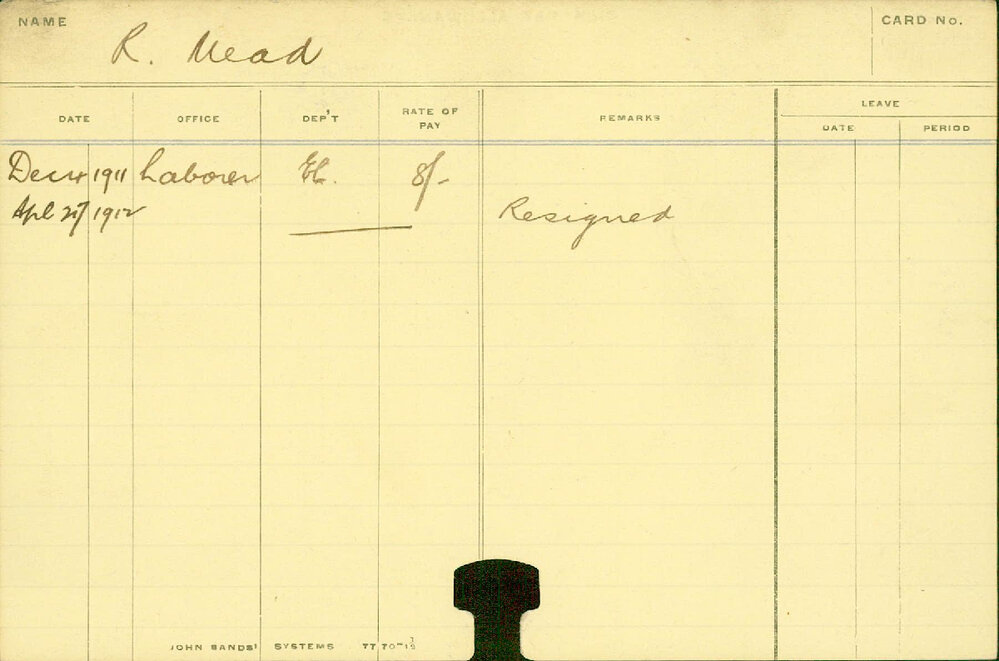 NAME
R. Mead
CARD No.
DATE OFFICE DEP'T RATE OF PAY REMARKS LEAVE
DATE PERIOD
Dec 14 1911 Laborer El. 8/-
Apl 27 1912 Resigned
JOHN SANDS' SYSTEMS